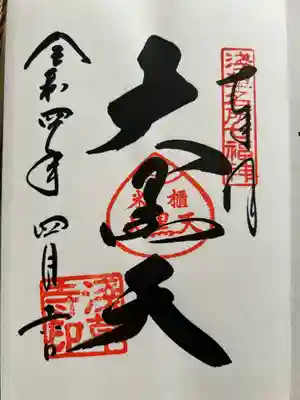 奉拝
浅草名所七福神
大黒天
米櫃
大黒天
令和四年四月吉日
浅草寺印